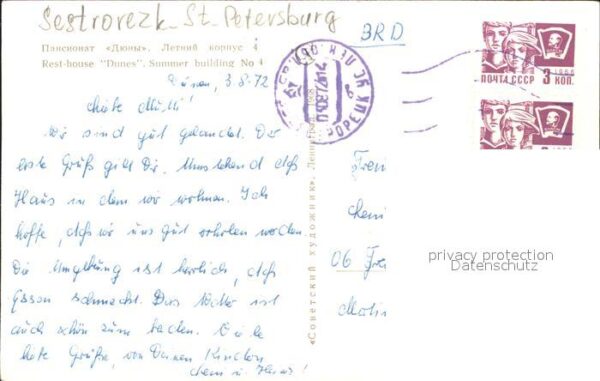 Sestrorezk - St. Petersburg
BRD
Пансионат «Дюны». Летний корпус 4
Rest-house "Dunes". Summer building No 4
Dünen, 3.8.72
Liebe Mutti!
Wir sind gut gelandet. Der
erste Gruß gilt Dir. Umstehend das
Haus in dem wir wohnen. Ich
hoffe, daß wir uns gut erholen werden.
Die Umgebung ist herrlich, das
Essen schmeckt. Das Wetter ist
auch schön zum baden. Viele
liebe Grüße, von Deinen Kindern
«Советский художник». Ленинград. 1968
ПОЧТА СССР 3 КОП.
1966
06
privacy protection
Datenschutz